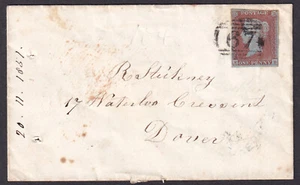 R Stickney
17 Waterloo Crescent
Dover
20. 11. 1851.
67
ONE PENNY